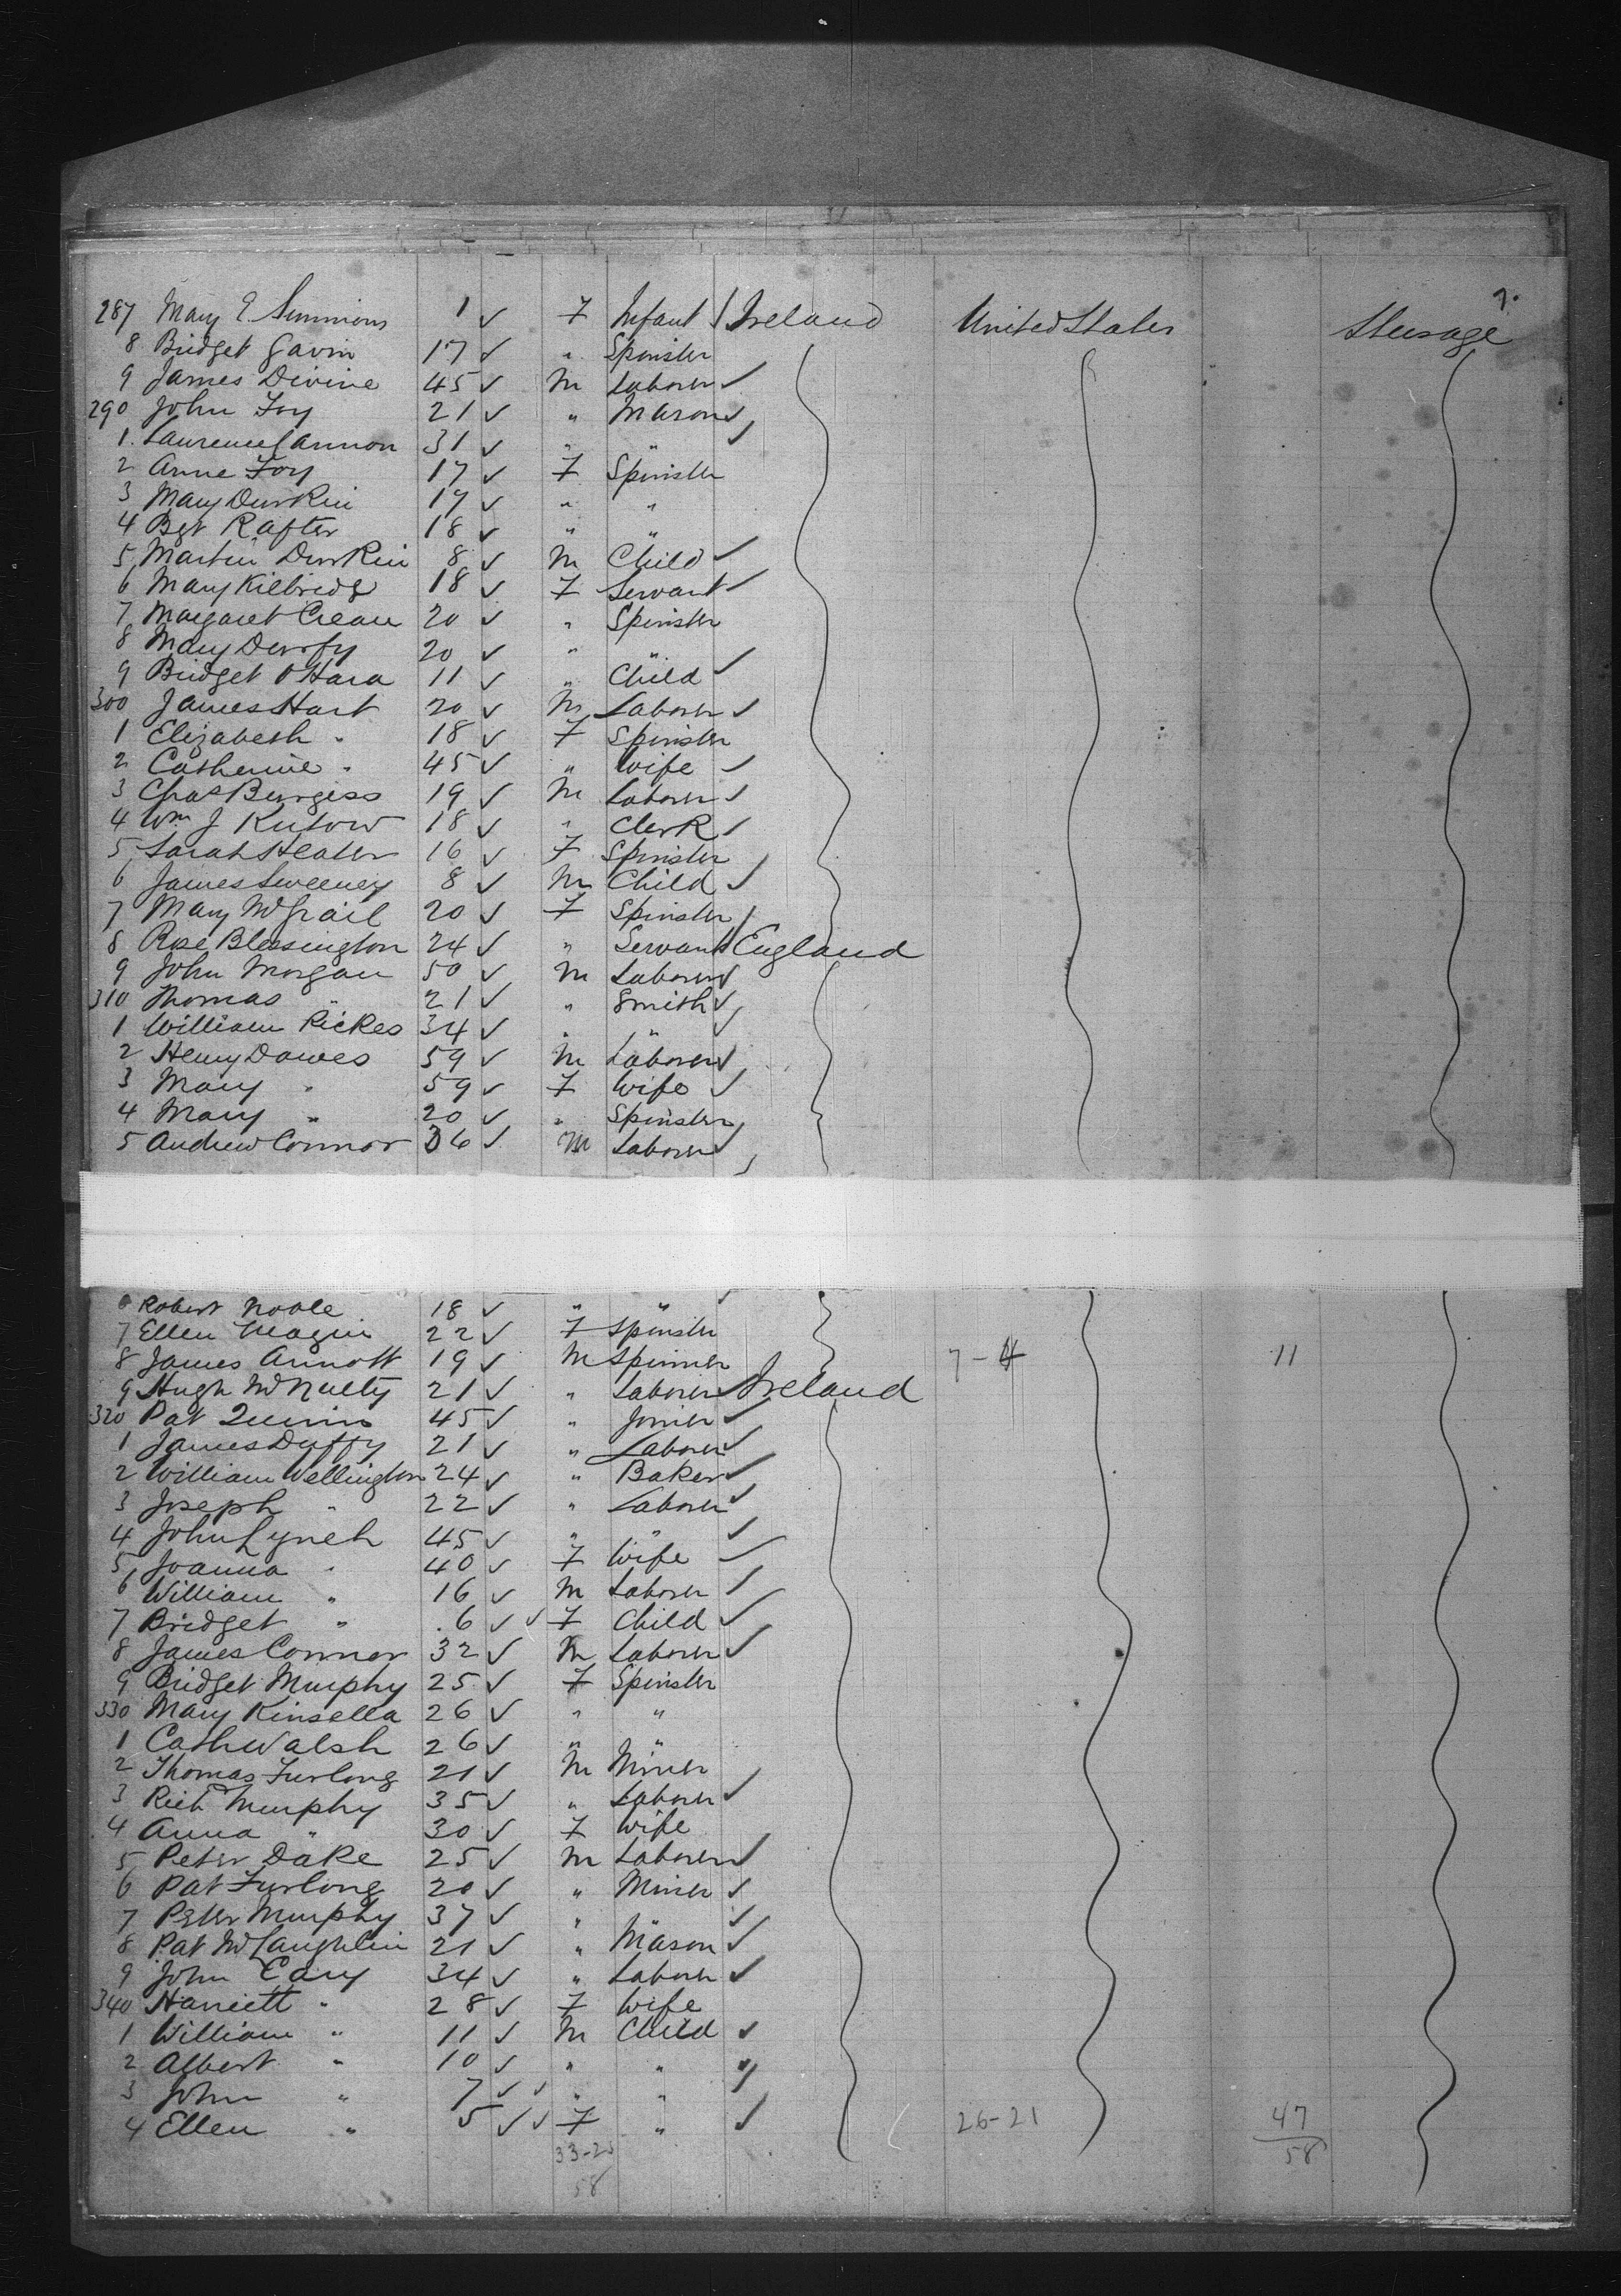 9.
287 Mary E. Simmions 1 ✓ F Infant / Ireland United States Steerage
8 Bridget Gavin 17 ✓ " Spinster
9 James Divine 45 ✓ M Laborer ✓
290 John Foy 21 ✓ " Mason ✓
1. Laurence Cannon 31 ✓ " " ✓
2 Anne Foy 17 ✓ F Spinster
3 Mary Durkin 17 ✓ " "
4 Bgt Rafter 18 ✓ " "
5 Martin Durkin 8 ✓ M Child ✓
6 Mary Kilbride 18 ✓ F Servant ✓
7 Margaret Crean 20 ✓ " Spinster
8 Mary 20 ✓ " "
9 Bridget O'Hara 11 ✓ " Child ✓
300 James Hart 20 ✓ M Laborer ✓
1 Elizabeth " 18 ✓ F Spinster
2 Catherine " 45 ✓ " Wife ✓
3 Chas Burgess 19 ✓ M Laborer ✓
4 Wm J 18 ✓ " Clerk ✓
5 Sarah 16 ✓ F Spinster
6 James Sweeney 8 ✓ M Child ✓
7 Mary McGrail 20 ✓ F Spinster /
8 Rose Blessington 24 ✓ " Servant / England
9 John Morgan 50 ✓ M Laborer ✓
310 Thomas " 21 ✓ " Smith ✓
1 William Rickes 34 ✓ " " ✓
2 Henry Dawes 59 ✓ M Laborer ✓
3 Mary " 59 ✓ F Wife ✓
4 Mary " 20 ✓ " Spinster
5 Andrew Connor 36 ✓ M Laborer ✓
6 Robert Noble 18 ✓ " "
7 Ellen Magin 22 ✓ F Spinster
8 James Arnott 19 ✓ M Spinner 7-4 11
9 Hugh McNulty 21 ✓ " Laborer ✓ Ireland
320 Pat Quinn 45 ✓ " Joiner ✓
1 James Duffy 21 ✓ " Laborer ✓
2 William Wellington 24 ✓ " Baker ✓
3 Joseph " 22 ✓ " Laborer ✓
4 John Lynch 45 ✓ " " ✓
5 Joanna " 40 ✓ F Wife ✓
6 William " 16 ✓ M Laborer ✓
7 Bridget " 6 ✓ ✓ F Child ✓
8 James Connor 32 ✓ M Laborer ✓
9 Bridget Murphy 25 ✓ F Spinster
330 Mary Kinsella 26 ✓ " "
1 Cath Walsh 26 ✓ " "
2 Thomas Furlong 21 ✓ M Miner
3 Richd Murphy 35 ✓ " Laborer ✓
4 Anna " 30 ✓ F Wife
5 Peter Dake 25 ✓ M Laborer ✓
6 Pat Furlong 20 ✓ " Miner ✓
7 Peter Murphy 37 ✓ " " ✓
8 Pat McLaughlin 21 ✓ " Mason ✓
9 John Cary 34 ✓ " Laborer ✓
340 Harriett " 28 ✓ F Wife
1 William " 11 ✓ M Child ✓
2 Albert " 10 ✓ " " ✓
3 John " 7 ✓ ✓ " "
4 Ellen " 5 ✓ ✓ F " ✓ 26-21 47
58
58